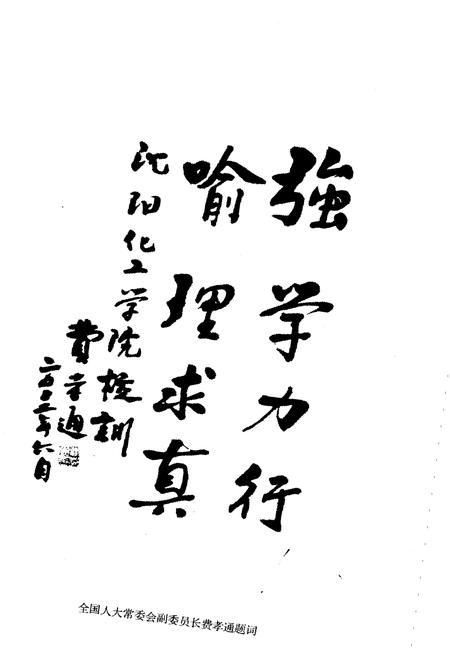 強学力行
喻理求真
沈阳化工学院校訓
費孝通
二〇〇二年六月
全国人大常委会副委员长费孝通题词